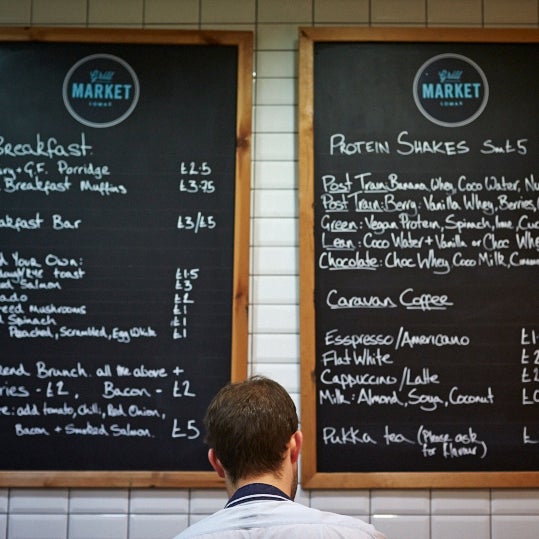 Grill
MARKET
Breakfast.
+ G.F. Porridge £2.5
Breakfast Muffins £3.75
Bar £3/£5
Your Own:
toast £1.5
Salmon £3
£2
Mushrooms £1
Spinach £1
Poached, Scrambled, Egg White £1
Brunch. all the above +
- £2, Bacon - £2
add tomato, Chilli, Red Onion,
Bacon + Smoked Salmon. £5
Grill
MARKET
PROTEIN SHAKES Sm £5
Post Train: Banana, Whey, Coco Water,
Post Train: Berry: Vanilla Whey, Berries,
Green: Vegan Protein, Spinach, lime,
Lean: Coco Water + Vanilla or Choc Whey
Chocolate: Choc Whey Coco Milk,
Caravan Coffee
Esspresso/Americano
Flat White £2
Cappuccino/Latte £2
Milk: Almond, Soya, Coconut
Pukka tea (Please ask
for flavour)